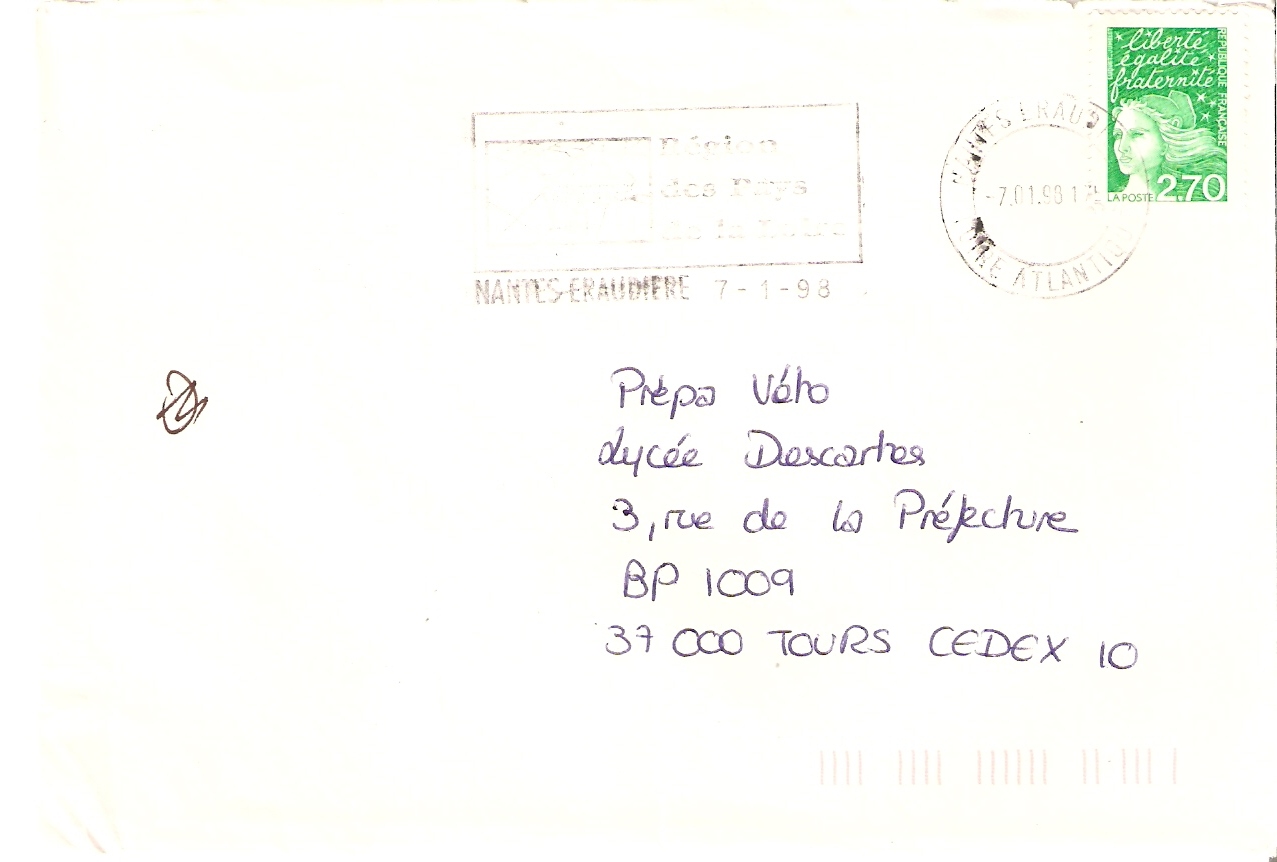 liberté
égalité
fraternité
RÉPUBLIQUE FRANÇAISE
LA POSTE 2,70
NANTES ERAUD
-7.01.98 1
ATLANTIQ
Région
des Pays
de la Loire
NANTES-ERAUDIERE 7-1-98
Prépa Véto
Lycée Descartes
3, rue de la Préfecture
BP 1009
37 000 TOURS CEDEX 10